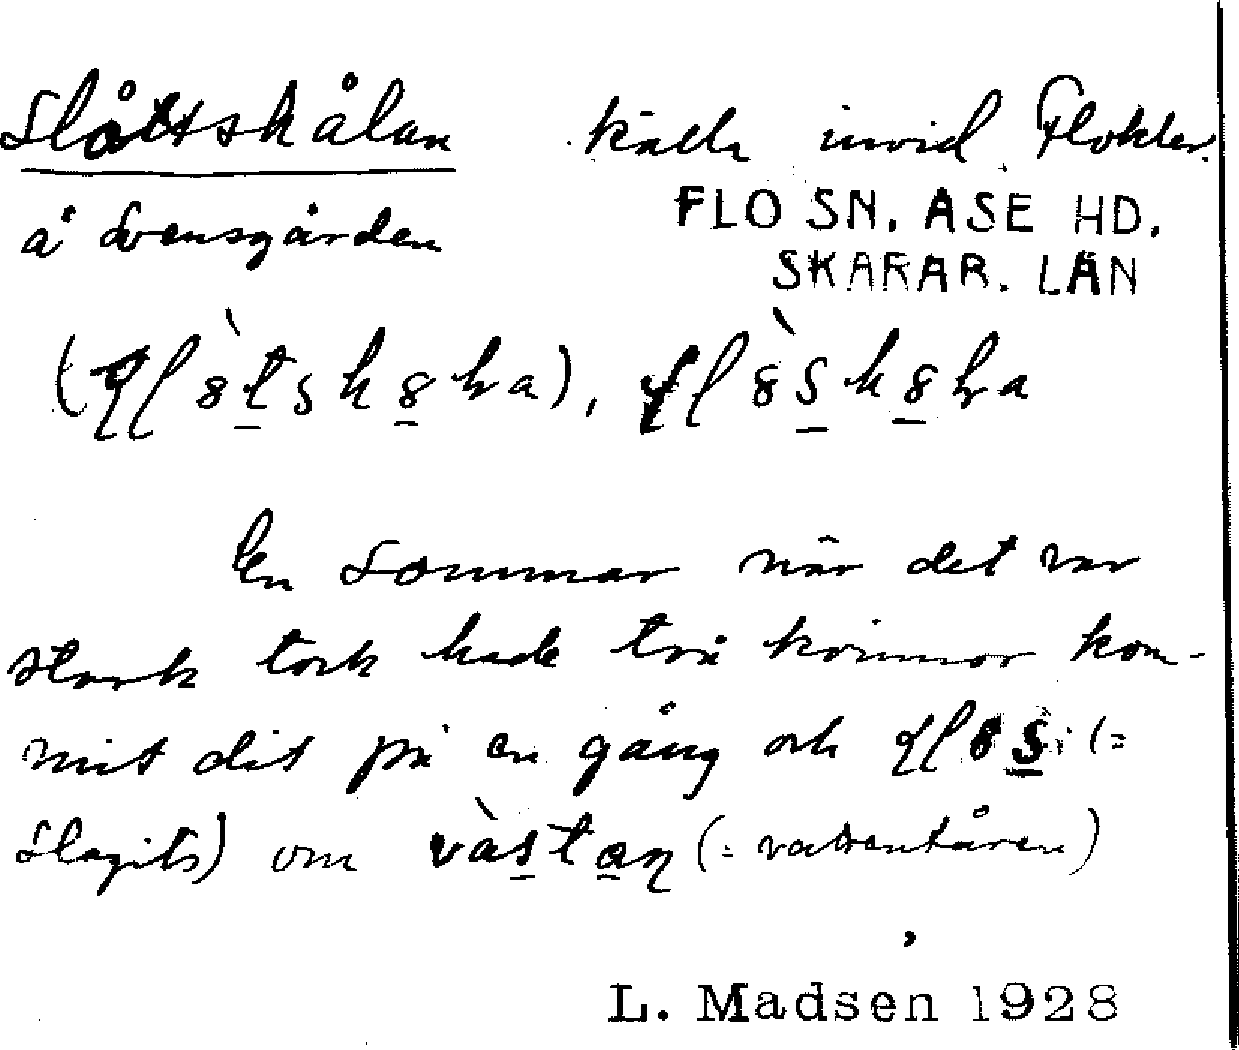 Slåttskålan källa invid Flokler.
å Svensgården FLO SN. ÅSE HD.
SKARAB. LÄN
En sommar när det var
stark tork hade två kvinnor kom-
mit dit på en gång och (=
slagits) om västan (= vattentåren)
L. Madsen 1928